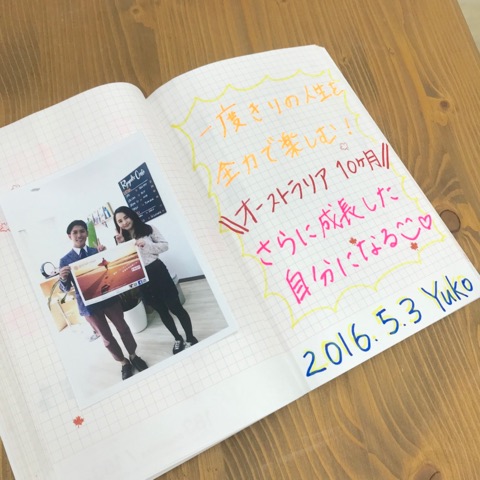 一度きりの人生を
全力で楽しむ！
\\オーストラリア 10ヶ月//
さらに成長した
自分になる
2016.5.3 Yuko